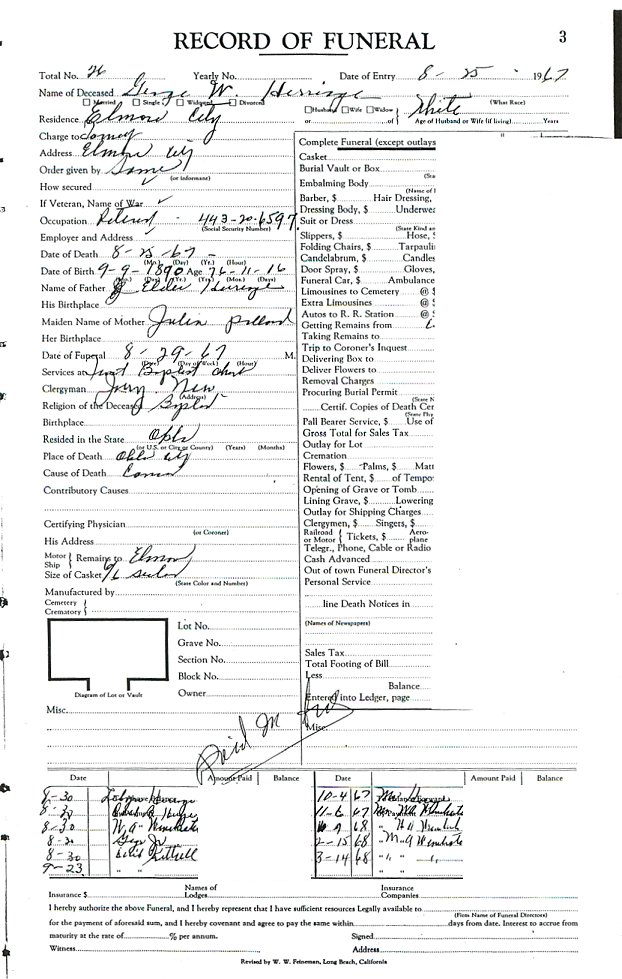 3
RECORD OF FUNERAL
Total No. 26 Yearly No. Date of Entry 8 - 25 - 1967
Name of Deceased George W.
Married Single Widowed Divorced Husband Wife Widow White (What Race)
Residence Elmore City or of Age of Husband or Wife (if living) Years
Charge to
Address Elmore City
Order given by Same
(or informant)
How secured
If Veteran, Name of War
Occupation Retired - 443-20-6597
(Social Security Number)
Employer and Address
Date of Death 8-25-67
(Mo.) (Day) (Yr.) (Hour)
Date of Birth 9-9-1890 Age 76-11-16
(Mo.) (Day) (Yr.) (Yrs.) (Mos.) (Days)
Name of Father Elder
His Birthplace
Maiden Name of Mother Julia
Her Birthplace
Date of Funeral 8-29-67 M.
(Date) (Day of Week) (Hour)
Services at First Baptist
Clergyman Jerry New
(Address)
Religion of the Deceased Baptist
Birthplace
Resided in the State Okla
(or U.S. or City or County) (Years) (Months)
Place of Death Okla City
Cause of Death
Contributory Causes
Certifying Physician
(or Coroner)
His Address
Motor Ship Remains to Elmore
Size of Casket
(State Color and Number)
Manufactured by
Cemetery
Crematory
Lot No.
Grave No.
Section No.
Block No.
Owner
Diagram of Lot or Vault
Misc.
Complete Funeral (except outlays
Casket
Burial Vault or Box
Embalming Body
(Name of
Barber, $ Hair Dressing,
Dressing Body, $ Underwea
Suit or Dress
(State Kind an
Slippers, $ Hose, $
Folding Chairs, $ Tarpauli
Candelabrum, $ Candles
Door Spray, $ Gloves,
Funeral Car, $ Ambulance
Limousines to Cemetery @ $
Extra Limousines @ $
Autos to R. R. Station @ $
Getting Remains from
Taking Remains to
Trip to Coroner's Inquest
Delivering Box to
Deliver Flowers to
Removal Charges
Procuring Burial Permit
Certif. Copies of Death Cer
Pall Bearer Service, $ Use of
Gross Total for Sales Tax
Outlay for Lot
Cremation
Flowers, $ Palms, $ Matt
Rental of Tent, $ of Tempo
Opening of Grave or Tomb
Lining Grave, $ Lowering
Outlay for Shipping Charges
Clergymen, $ Singers, $
Railroad or Motor Tickets, $ Aeroplane
Telegr., Phone, Cable or Radio
Cash Advanced
Out of town Funeral Director's
Personal Service
line Death Notices in
(Names of Newspapers)
Sales Tax
Total Footing of Bill
Less
Balance
Entered into Ledger, page
Misc.
Paid In
Date Amount Paid Balance Date Amount Paid Balance
8-30 10-4 67
8-30 11-6 67
8-30 W.A. 9 68
8-30 Geo Jr 2-15 68
8-30 3-14 68
9-23 " "
Insurance $ Names of Lodges Insurance Companies
I hereby authorize the above Funeral, and I hereby represent that I have sufficient resources Legally available to
(Firm Name of Funeral Directors)
for the payment of aforesaid sum, and I hereby covenant and agree to pay the same within days from date. Interest to accrue from
maturity at the rate of % per annum. Signed
Witness Address
Revised by W. W. Feineman, Long Beach, California